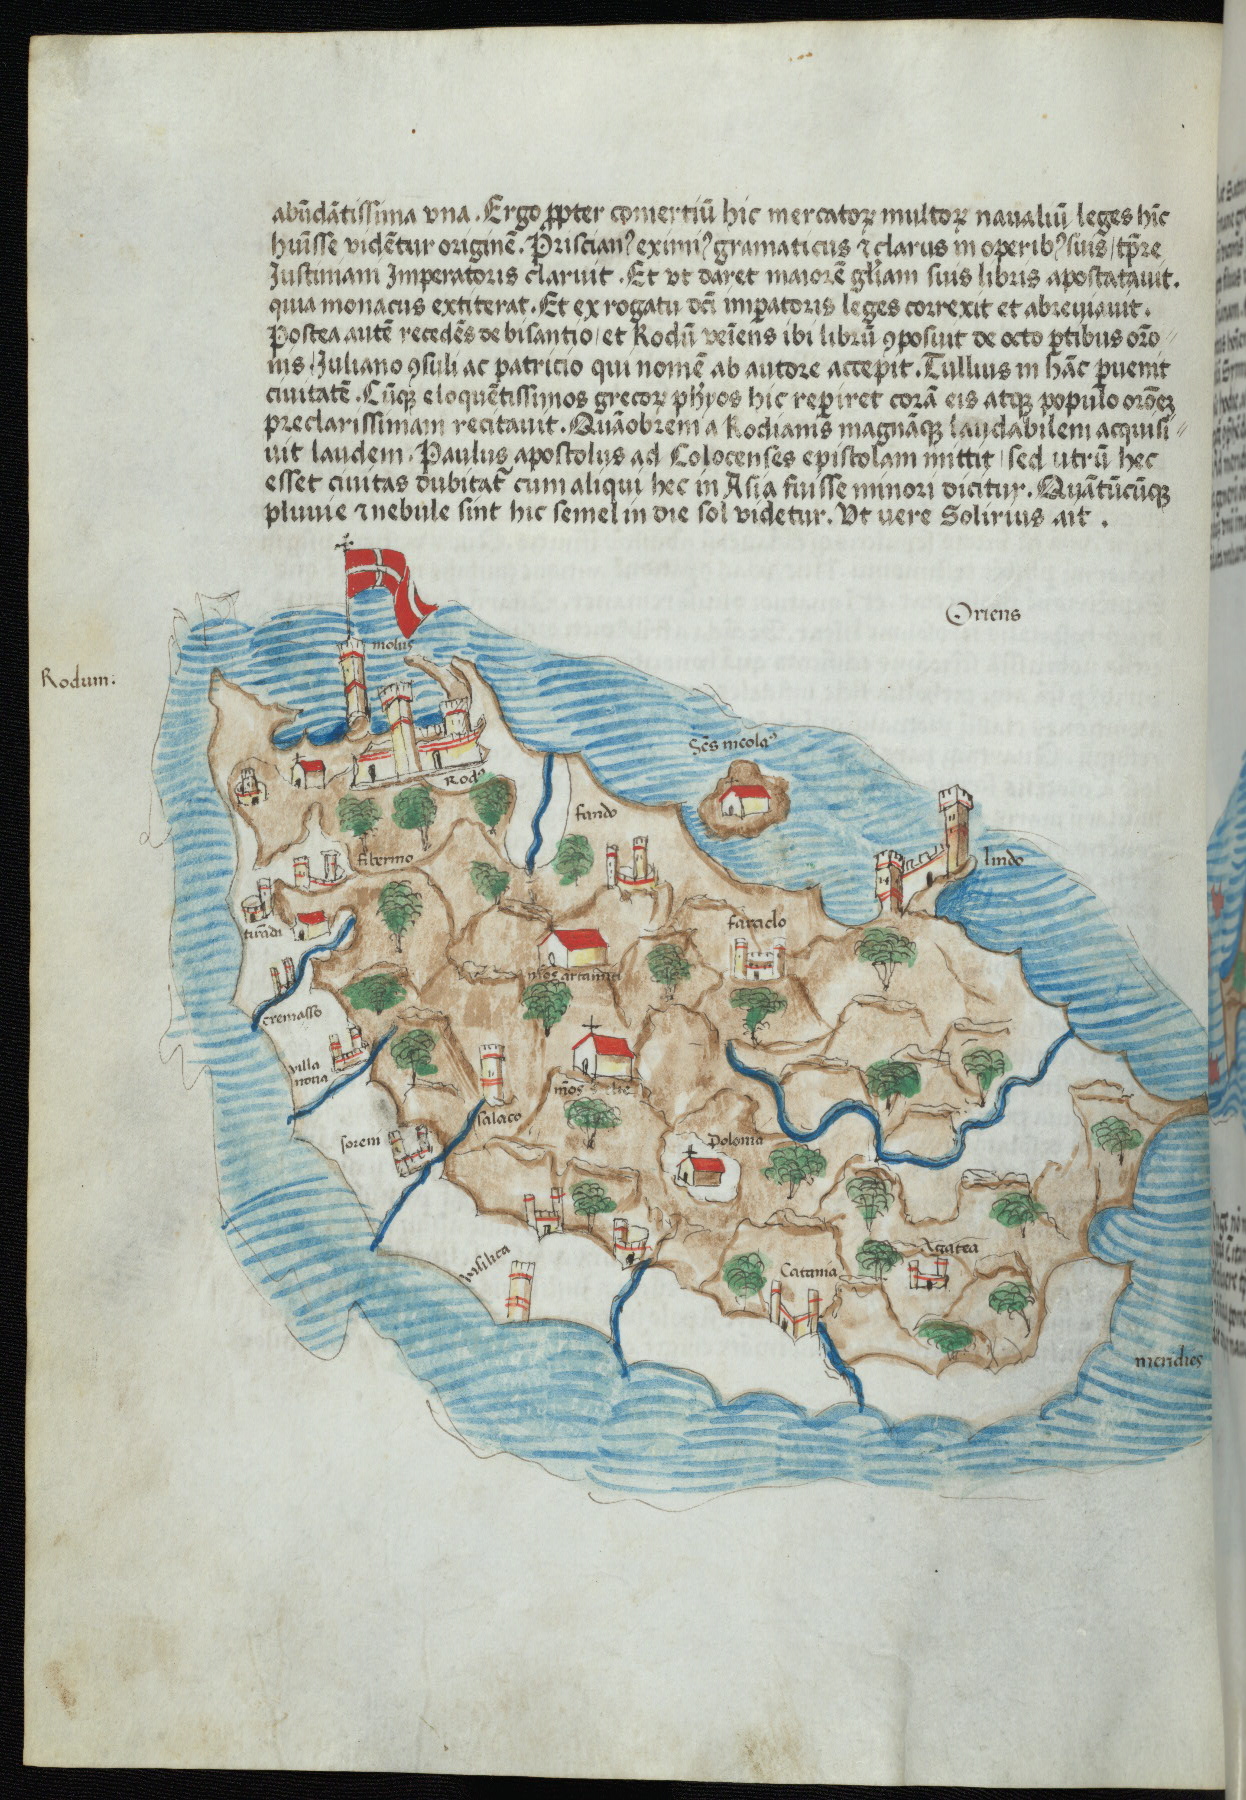 abūdātissima vna. Ergo ꝓpter cōmertiū hic mercatoꝝ multoꝝ navaliū leges hīc
huīsse vidētur originē. Priscianꝰ eximiꝰ gramaticus ⁊ clarus in operibꝰ suis / tp̄re
Justiniani Imperatoris claruit. Et vt daret maiorē gl̄iam suis libris apostatavit.
quia monacus extiterat. Et ex rogatu dc̄i imꝑatoris leges correxit et abreviavit.
Postea autē recedēs de bisantio / et Rodū veīens ibi librū ꝯposuit de octo ꝑtibus orō
nis. Juliano ꝯsuli ac patricio qui nomē ab autore accepit. Tullius in hāc ꝑuenit
civitatē. Cūqꝫ eloquētissimos grecoꝝ phyōs hic reperiret corā eis atqꝫ populo orōeꝫ
preclarissimam recitavit. Quāobrem a Rodianis magnāqꝫ laudabilem acquisi
vit laudem. Paulus apostolus ad Colocenses epistolam mittit / sed utrū hec
esset civitas dubitat̄ cum aliqui hec in Asia fuisse minori dicitur. Quātūcūqꝫ
pluvie ⁊ nebule sint hic semel in die sol videtur. Vt vere Solirius ait.
Oriens
Rodum:
molus
Scs nicolaꝰ
Rodꝰ
fando
filermo
lindo
faraclo
mōs artamiti
cremasso
villa
nova
mōs
salaco
sorem
Polonia
vasilica
Agatea
Catania
meridies